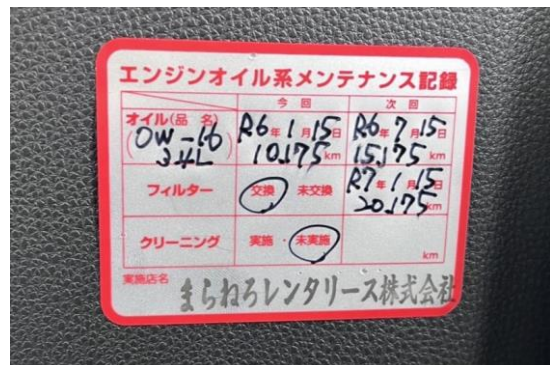 エンジンオイル系メンテナンス記録
今回 次回
オイル(品 名) R6年1月15日 R6年7月15日
(0W-16 3.4L) 10,175km 15,175km
フィルター 交換 未交換 R7年1月15日 20,175km
クリーニング 実施・未実施 km
実施店名 まらねろレンタリース株式会社